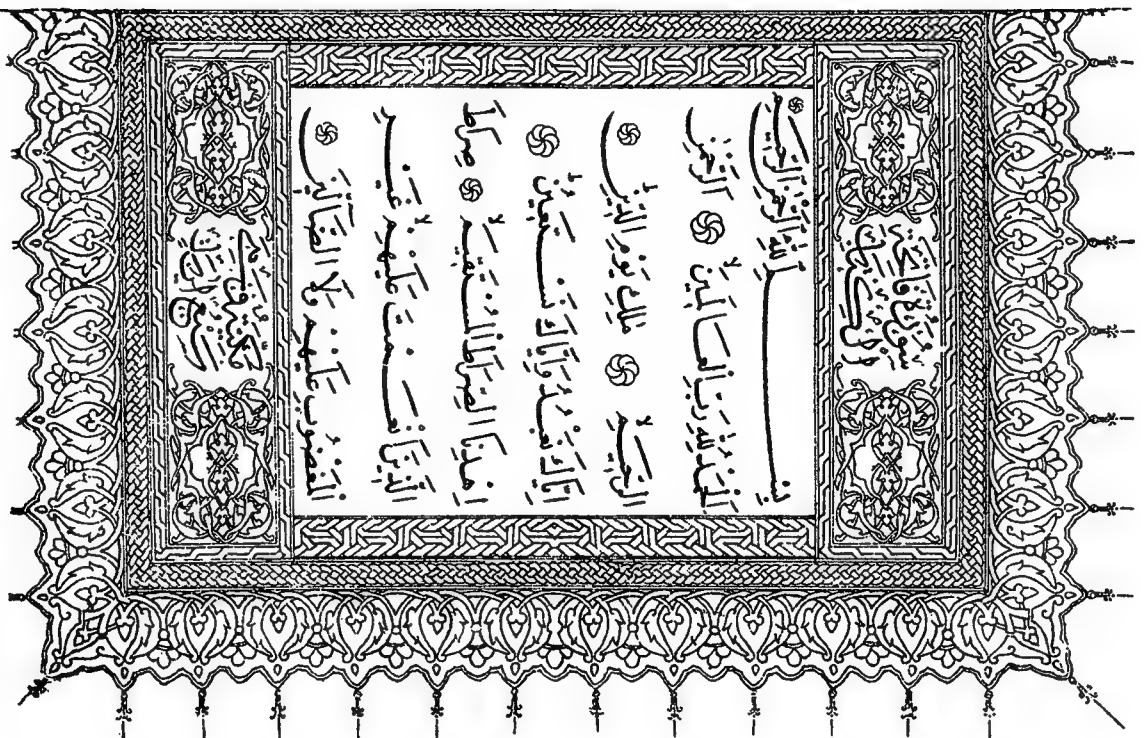 بِسْمِ اللَّهِ الرَّحْمَنِ الرَّحِيمِ
الْحَمْدُ لِلَّهِ رَبِّ الْعَالَمِينَ الرَّحْمَنِ
الرَّحِيمِ مَالِكِ يَوْمِ الدِّينِ
إِيَّاكَ نَعْبُدُ وَإِيَّاكَ نَسْتَعِينُ
اهْدِنَا الصِّرَاطَ الْمُسْتَقِيمَ صِرَاطَ
الَّذِينَ أَنْعَمْتَ عَلَيْهِمْ غَيْرِ
الْمَغْضُوبِ عَلَيْهِمْ وَلَا الضَّالِّينَ